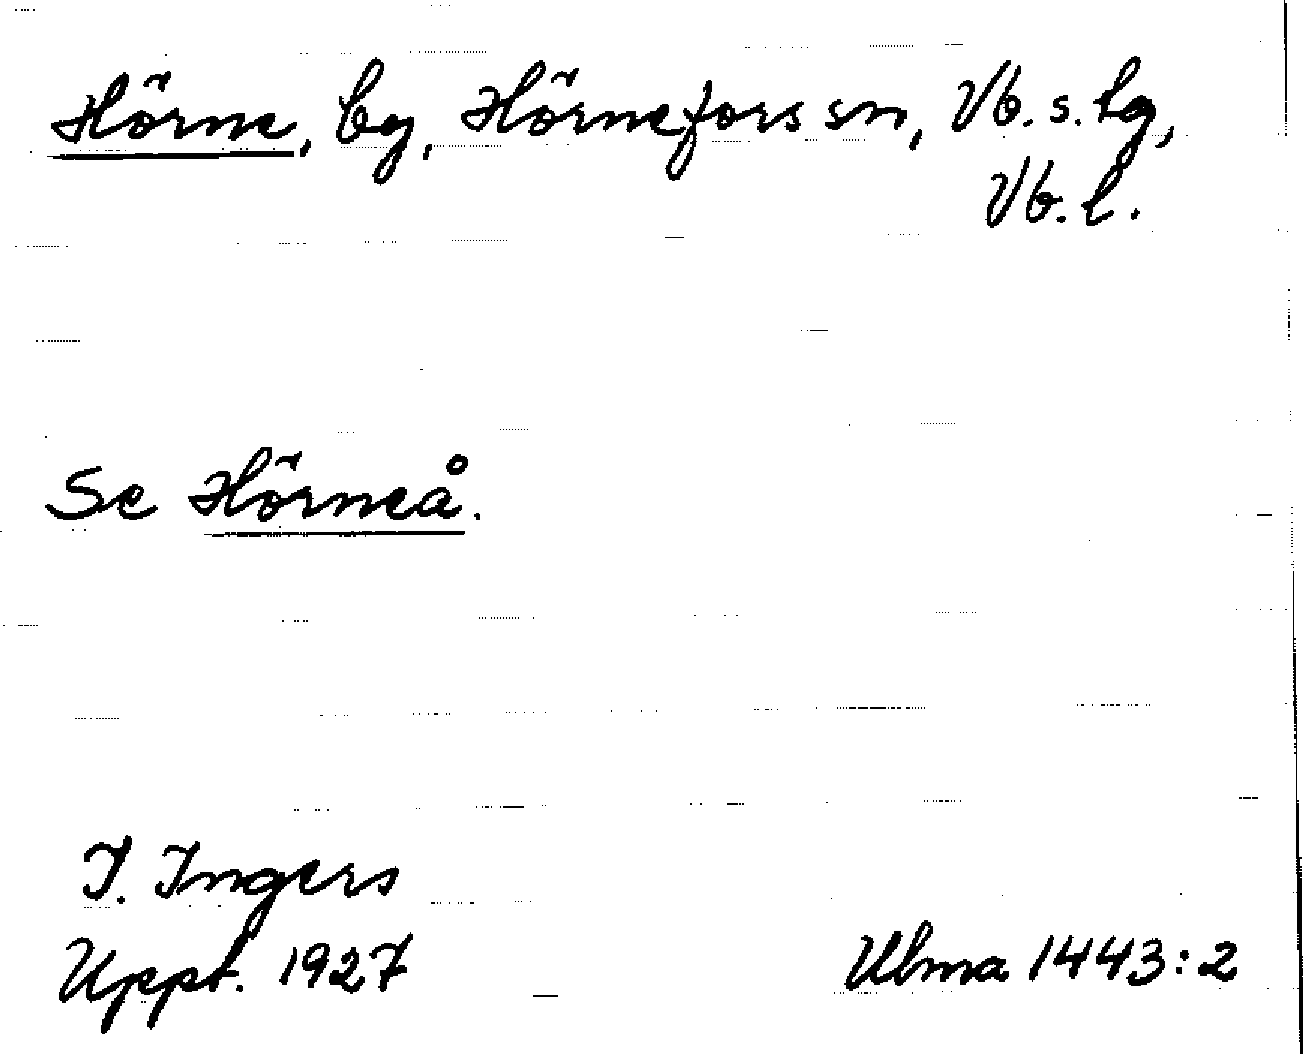 Hörne, by, Hörnefors sn, Vb. s. lg,
Vb. l.
Se Hörneå.
I. Ingers
Uppt. 1927
Ulma 1443:2